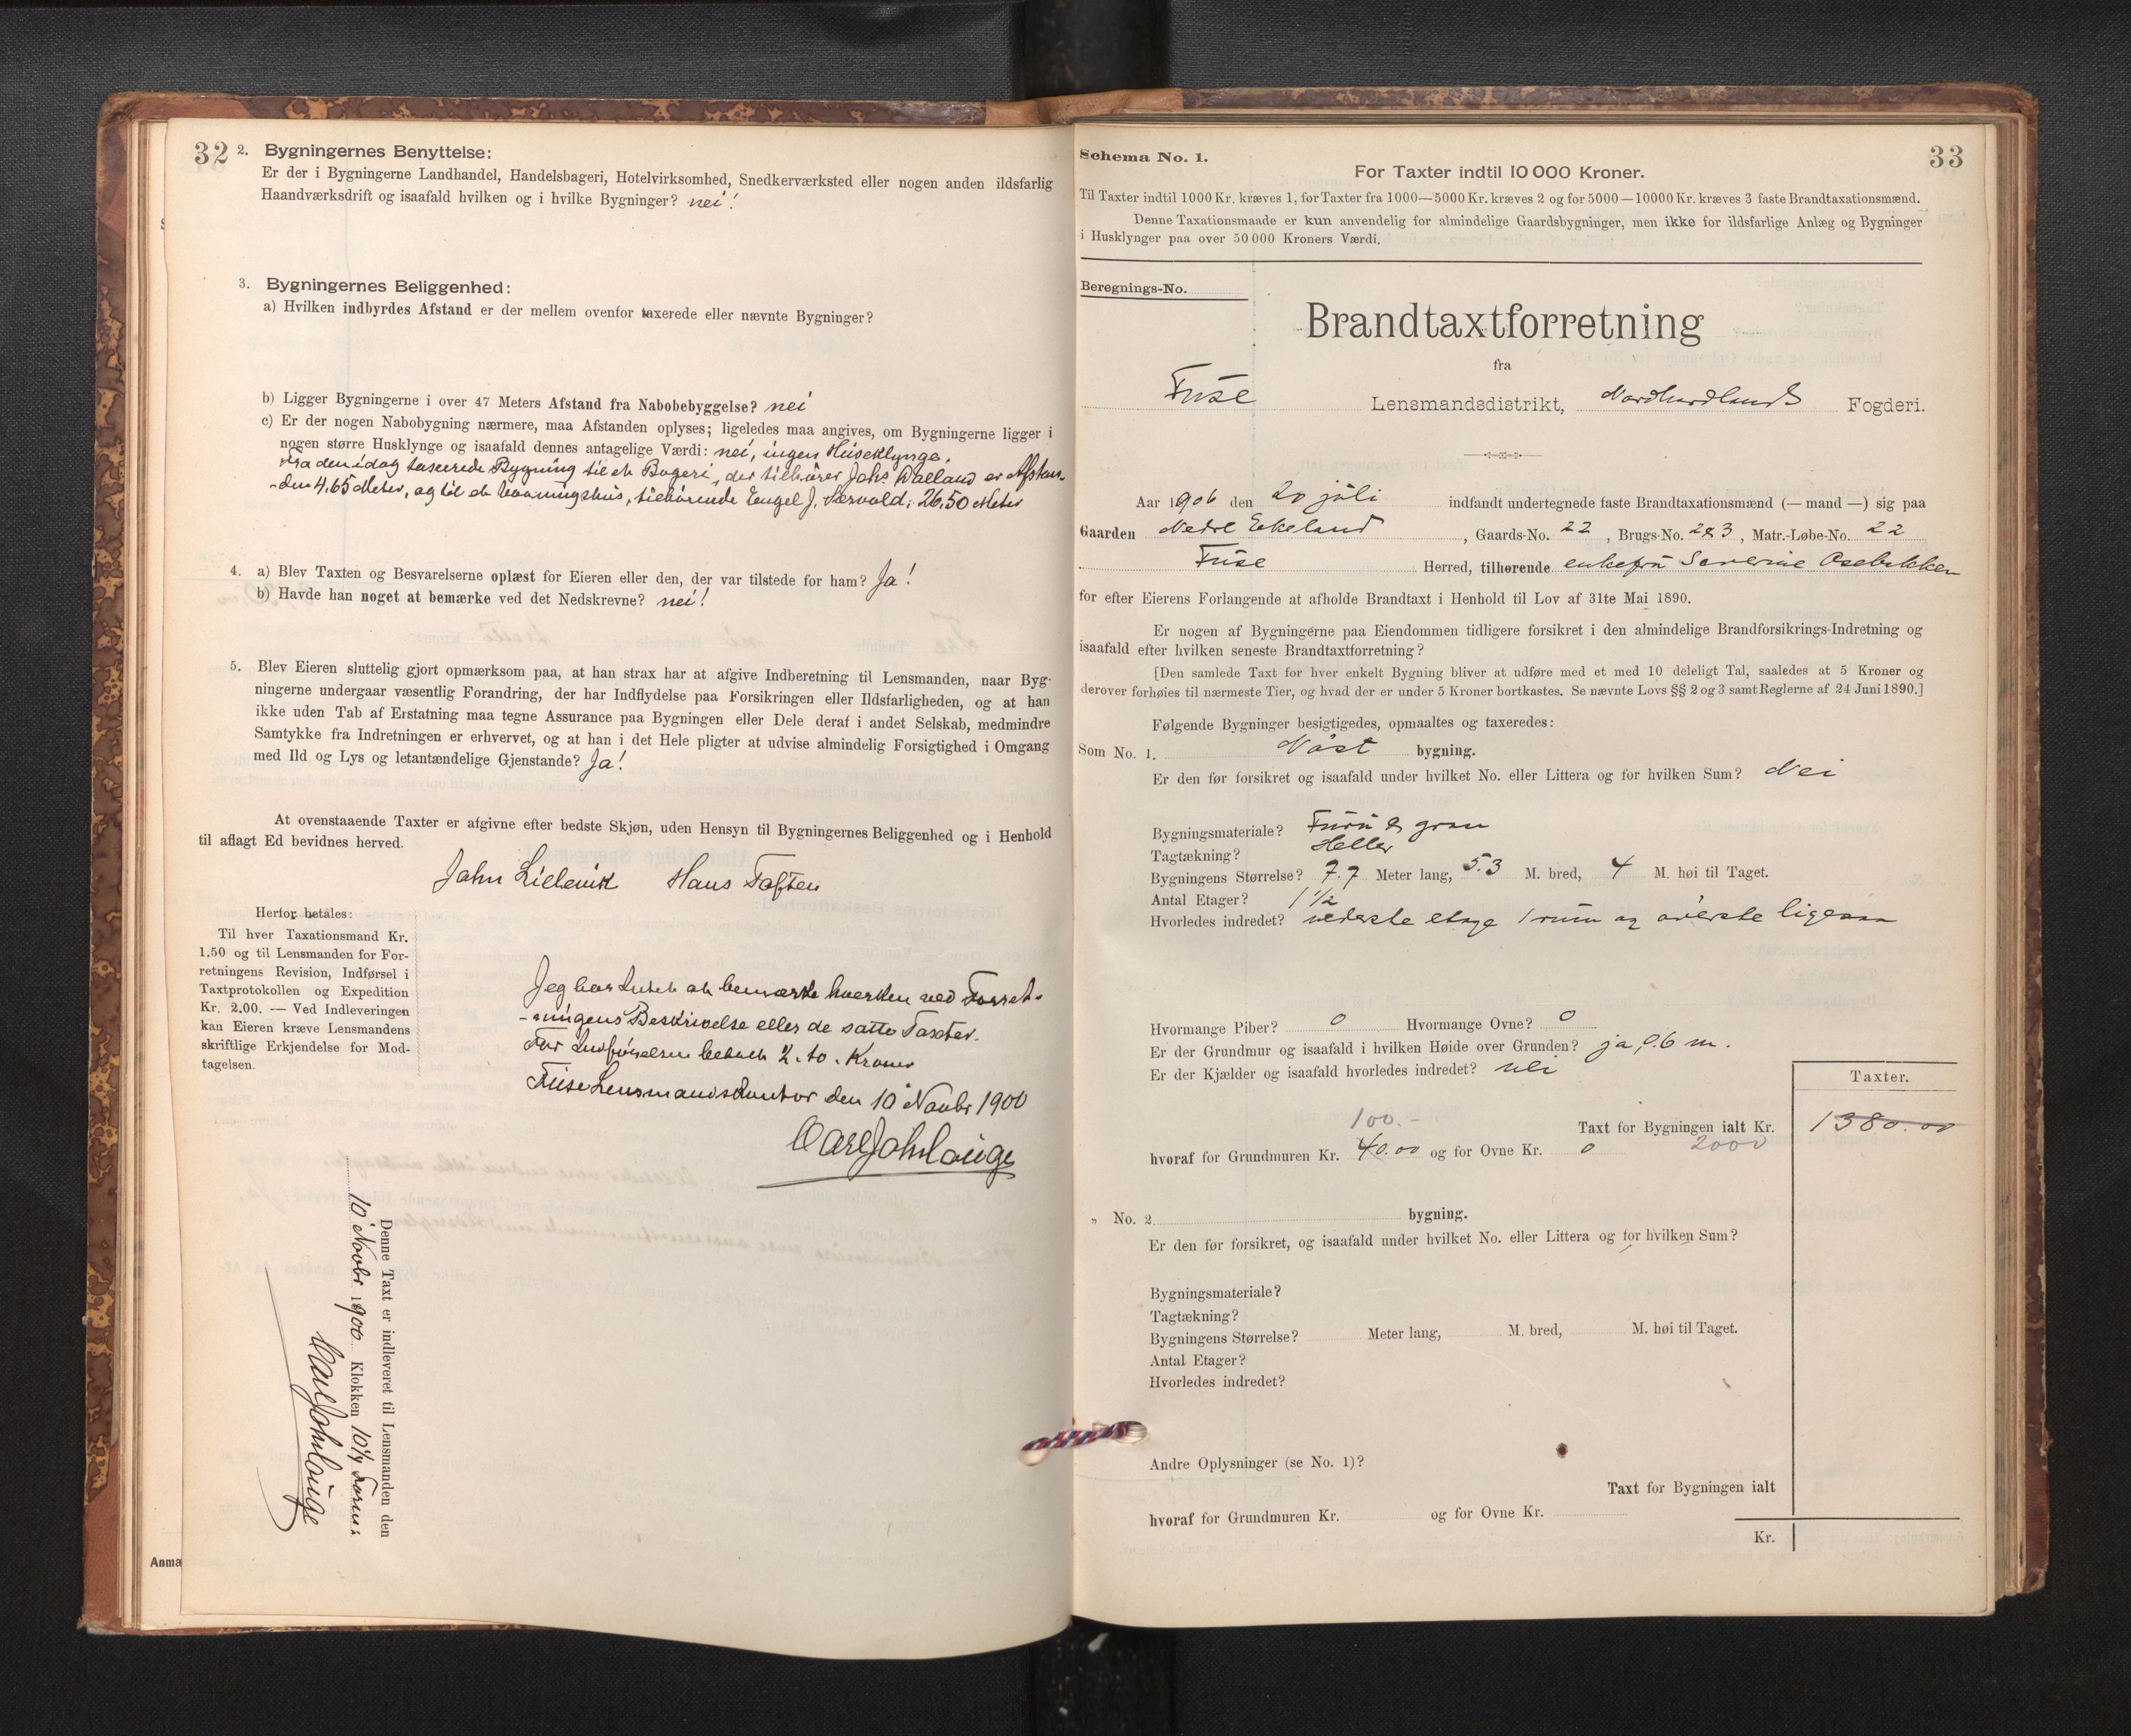 32
2. Bygningernes Benyttelse:
Er der i Bygningerne Landhandel, Handelsbageri, Hotelvirksomhed, Snedkerværksted eller nogen anden ildsfarlig
Haandværksdrift og isaafald hvilken og i hvilke Bygninger? nei!
3. Bygningernes Beliggenhed:
a) Hvilken indbyrdes Afstand er der mellem ovenfor taxerede eller nævnte Bygninger?
b) Ligger Bygningerne i over 47 Meters Afstand fra Nabobebyggelse? nei
c) Er der nogen Nabobygning nærmere, maa Afstanden oplyses; ligeledes maa angives, om Bygningerne ligger i
nogen større Husklynge og isaafald dennes antagelige Værdi: nei, ingen Huseklynge.
Fra den idag taxerede Bygning til et Bageri, der tilhører Johs. Dalland er Afstan-
-den 4,65 Meter, og til et Vaaningshus, tilhørende Engel J. Nervold, 26,50 Meter
4. a) Blev Taxten og Besvarelserne oplæst for Eieren eller den, der var tilstede for ham? Ja!
b) Havde han noget at bemærke ved det Nedskrevne? nei!
5. Blev Eieren sluttelig gjort opmærksom paa, at han strax har at afgive Indberetning til Lensmanden, naar Byg-
ningerne undergaar væsentlig Forandring, der har Indflydelse paa Forsikringen eller Ildsfarligheden, og at han
ikke uden Tab af Erstatning maa tegne Assurance paa Bygningen eller Dele deraf i andet Selskab, medmindre
Samtykke fra Indretningen er erhvervet, og at han i det Hele pligter at udvise almindelig Forsigtighed i Omgang
med Ild og Lys og letantændelige Gjenstande? Ja!
At ovenstaaende Taxter er afgivne efter bedste Skjøn, uden Hensyn til Bygningernes Beliggenhed og i Henhold
til aflagt Ed bevidnes herved.
John Lillevik Hans Toften
Herfor betales:
Til hver Taxationsmand Kr.
1.50 og til Lensmanden for For-
retningens Revision, Indførsel i
Taxtprotokollen og Expedition
Kr. 2.00. — Ved Indleveringen
kan Eieren kræve Lensmandens
skriftlige Erkjendelse for Mod-
tagelsen.
Jeg har Intet at bemærke hverken ved Forret-
-ningens Beskrivelse eller de satte Taxter.
For Indførselen betalt 2. to. Kroner
Fuse Lensmandskontor den 10 Novbr 1900
Carl Joh Lauge
Denne Taxt er indleveret til Lensmanden den
10 Novbr 1900 Klokken 10¼ Form.
Carl Joh Lauge
Anmæ
33
Schema No. 1.
For Taxter indtil 10 000 Kroner.
Til Taxter indtil 1000 Kr. kræves 1, for Taxter fra 1000—5000 Kr. kræves 2 og for 5000—10000 Kr. kræves 3 faste Brandtaxationsmænd.
Denne Taxationsmaade er kun anvendelig for almindelige Gaardsbygninger, men ikke for ildsfarlige Anlæg og Bygninger
i Husklynger paa over 50 000 Kroners Værdi.
Beregnings-No.
Brandtaxtforretning
fra
Fuse Lensmandsdistrikt, Nordhordlands Fogderi.
Aar 1906 den 20 juli indfandt undertegnede faste Brandtaxationsmænd (— mand —) sig paa
Gaarden Nedre Eikeland, Gaards-No. 22, Brugs-No. 2&3, Matr.-Løbe-No. 22
Fuse Herred, tilhørende enkefru Severine Osebakken
for efter Eierens Forlangende at afholde Brandtaxt i Henhold til Lov af 31te Mai 1890.
Er nogen af Bygningerne paa Eiendommen tidligere forsikret i den almindelige Brandforsikrings-Indretning og
isaafald efter hvilken seneste Brandtaxtforretning?
[Den samlede Taxt for hver enkelt Bygning bliver at udføre med et med 10 deleligt Tal, saaledes at 5 Kroner og
derover forhøies til nærmeste Tier, og hvad der er under 5 Kroner bortkastes. Se nævnte Lovs §§ 2 og 3 samt Reglerne af 24 Juni 1890.]
Følgende Bygninger besigtigedes, opmaaltes og taxeredes:
Som No. 1. Nøst bygning.
Er den før forsikret og isaafald under hvilket No. eller Littera og for hvilken Sum? Nei
Bygningsmateriale? Furu & gran
Tagtækning? Heller
Bygningens Størrelse? 7.7 Meter lang, 5.3 M. bred, 4 M. høi til Taget.
Antal Etager? 1 1/2
Hvorledes indredet? nederste etage 1 rum og øverste ligesaa
Hvormange Piber? 0 Hvormange Ovne? 0
Er der Grundmur og isaafald i hvilken Høide over Grunden? ja, 0.6 m.
Er der Kjælder og isaafald hvorledes indredet? nei
Taxter.
100.-
Taxt for Bygningen ialt Kr. 1380.00
hvoraf for Grundmuren Kr. 40.00 og for Ovne Kr. 0 2000
„ No. 2. bygning.
Er den før forsikret, og isaafald under hvilket No. eller Littera og for hvilken Sum?
Bygningsmateriale?
Tagtækning?
Bygningens Størrelse? Meter lang, M. bred, M. høi til Taget.
Antal Etager?
Hvorledes indredet?
Andre Oplysninger (se No. 1)?
Taxt for Bygningen ialt
hvoraf for Grundmuren Kr. og for Ovne Kr.
Kr.